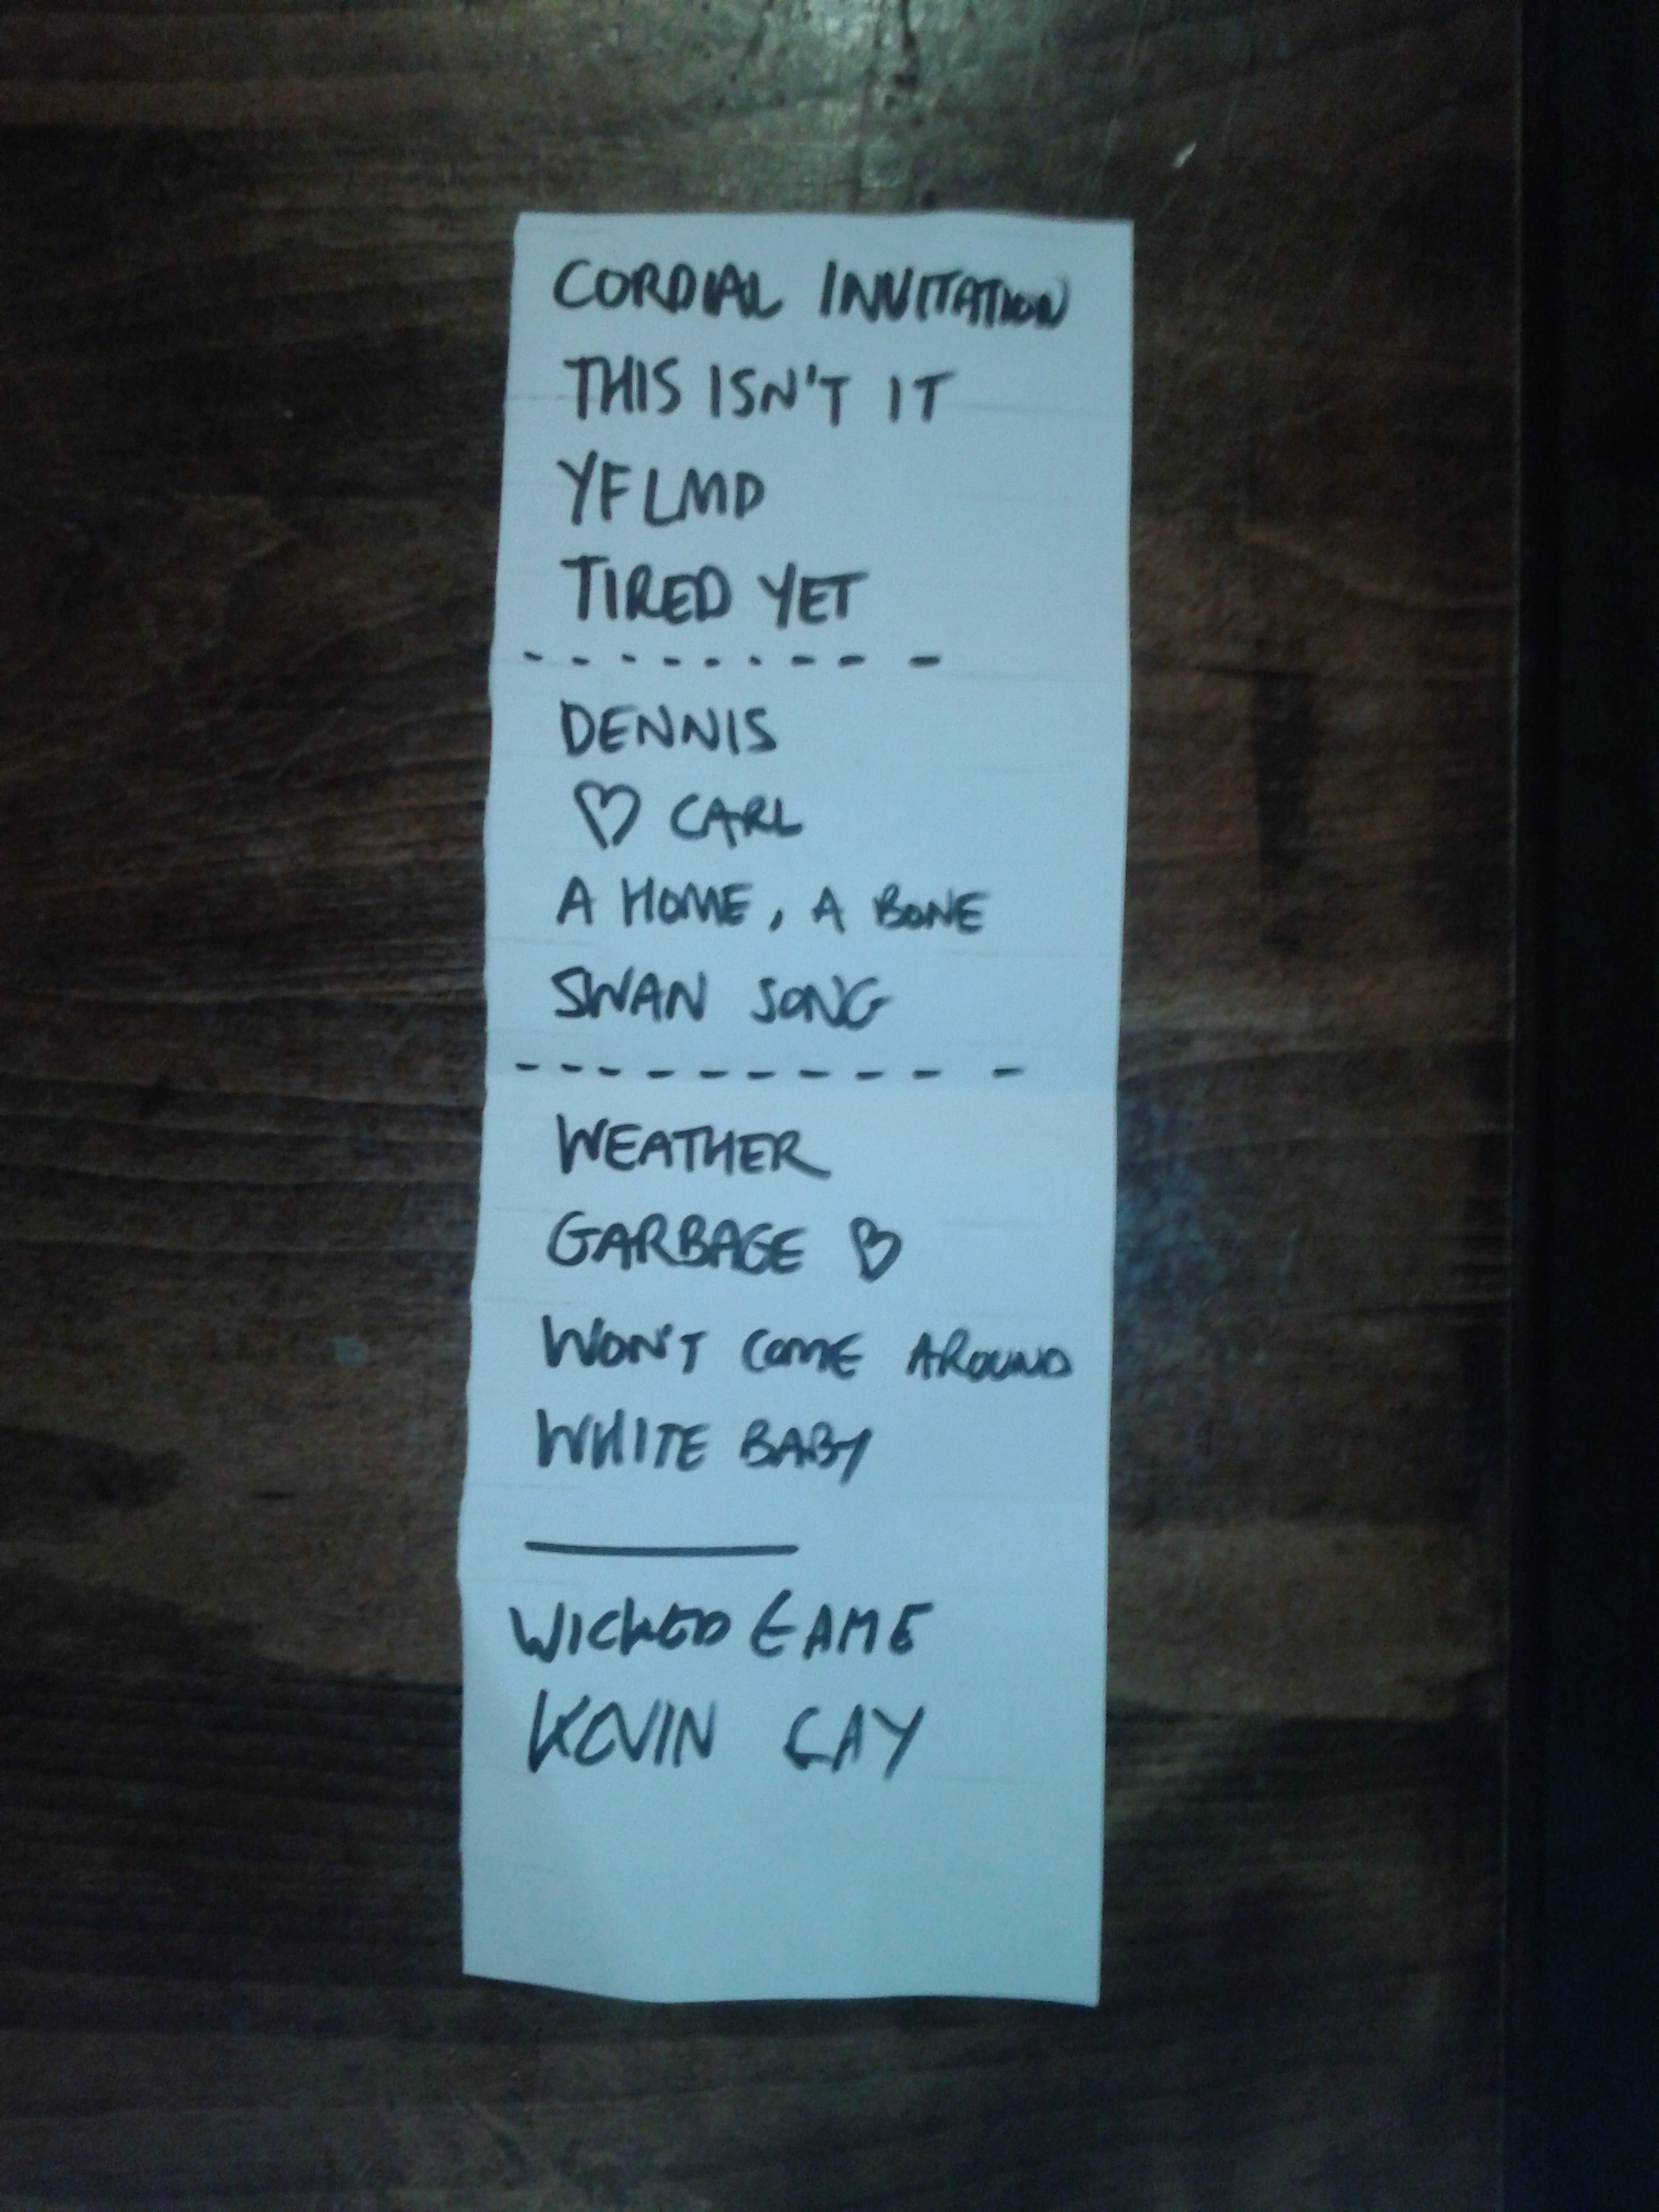 CORDIAL INVITATION
THIS ISN'T IT
YFLMD
TIRED YET
DENNIS
♡ CARL
A HOME, A BONE
SWAN SONG
WEATHER
GARBAGE ♡
WON'T COME AROUND
WHITE BABY
WICKED GAME
KEVIN GAY